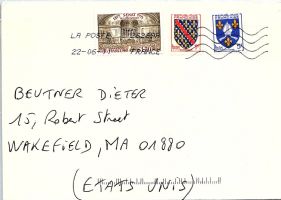 SENAT
LA POSTE
22-06-
FRANCE
BEUTNER DIETER
15, Robert Street
WAKEFIELD, MA 01880
(ETATS UNIS)